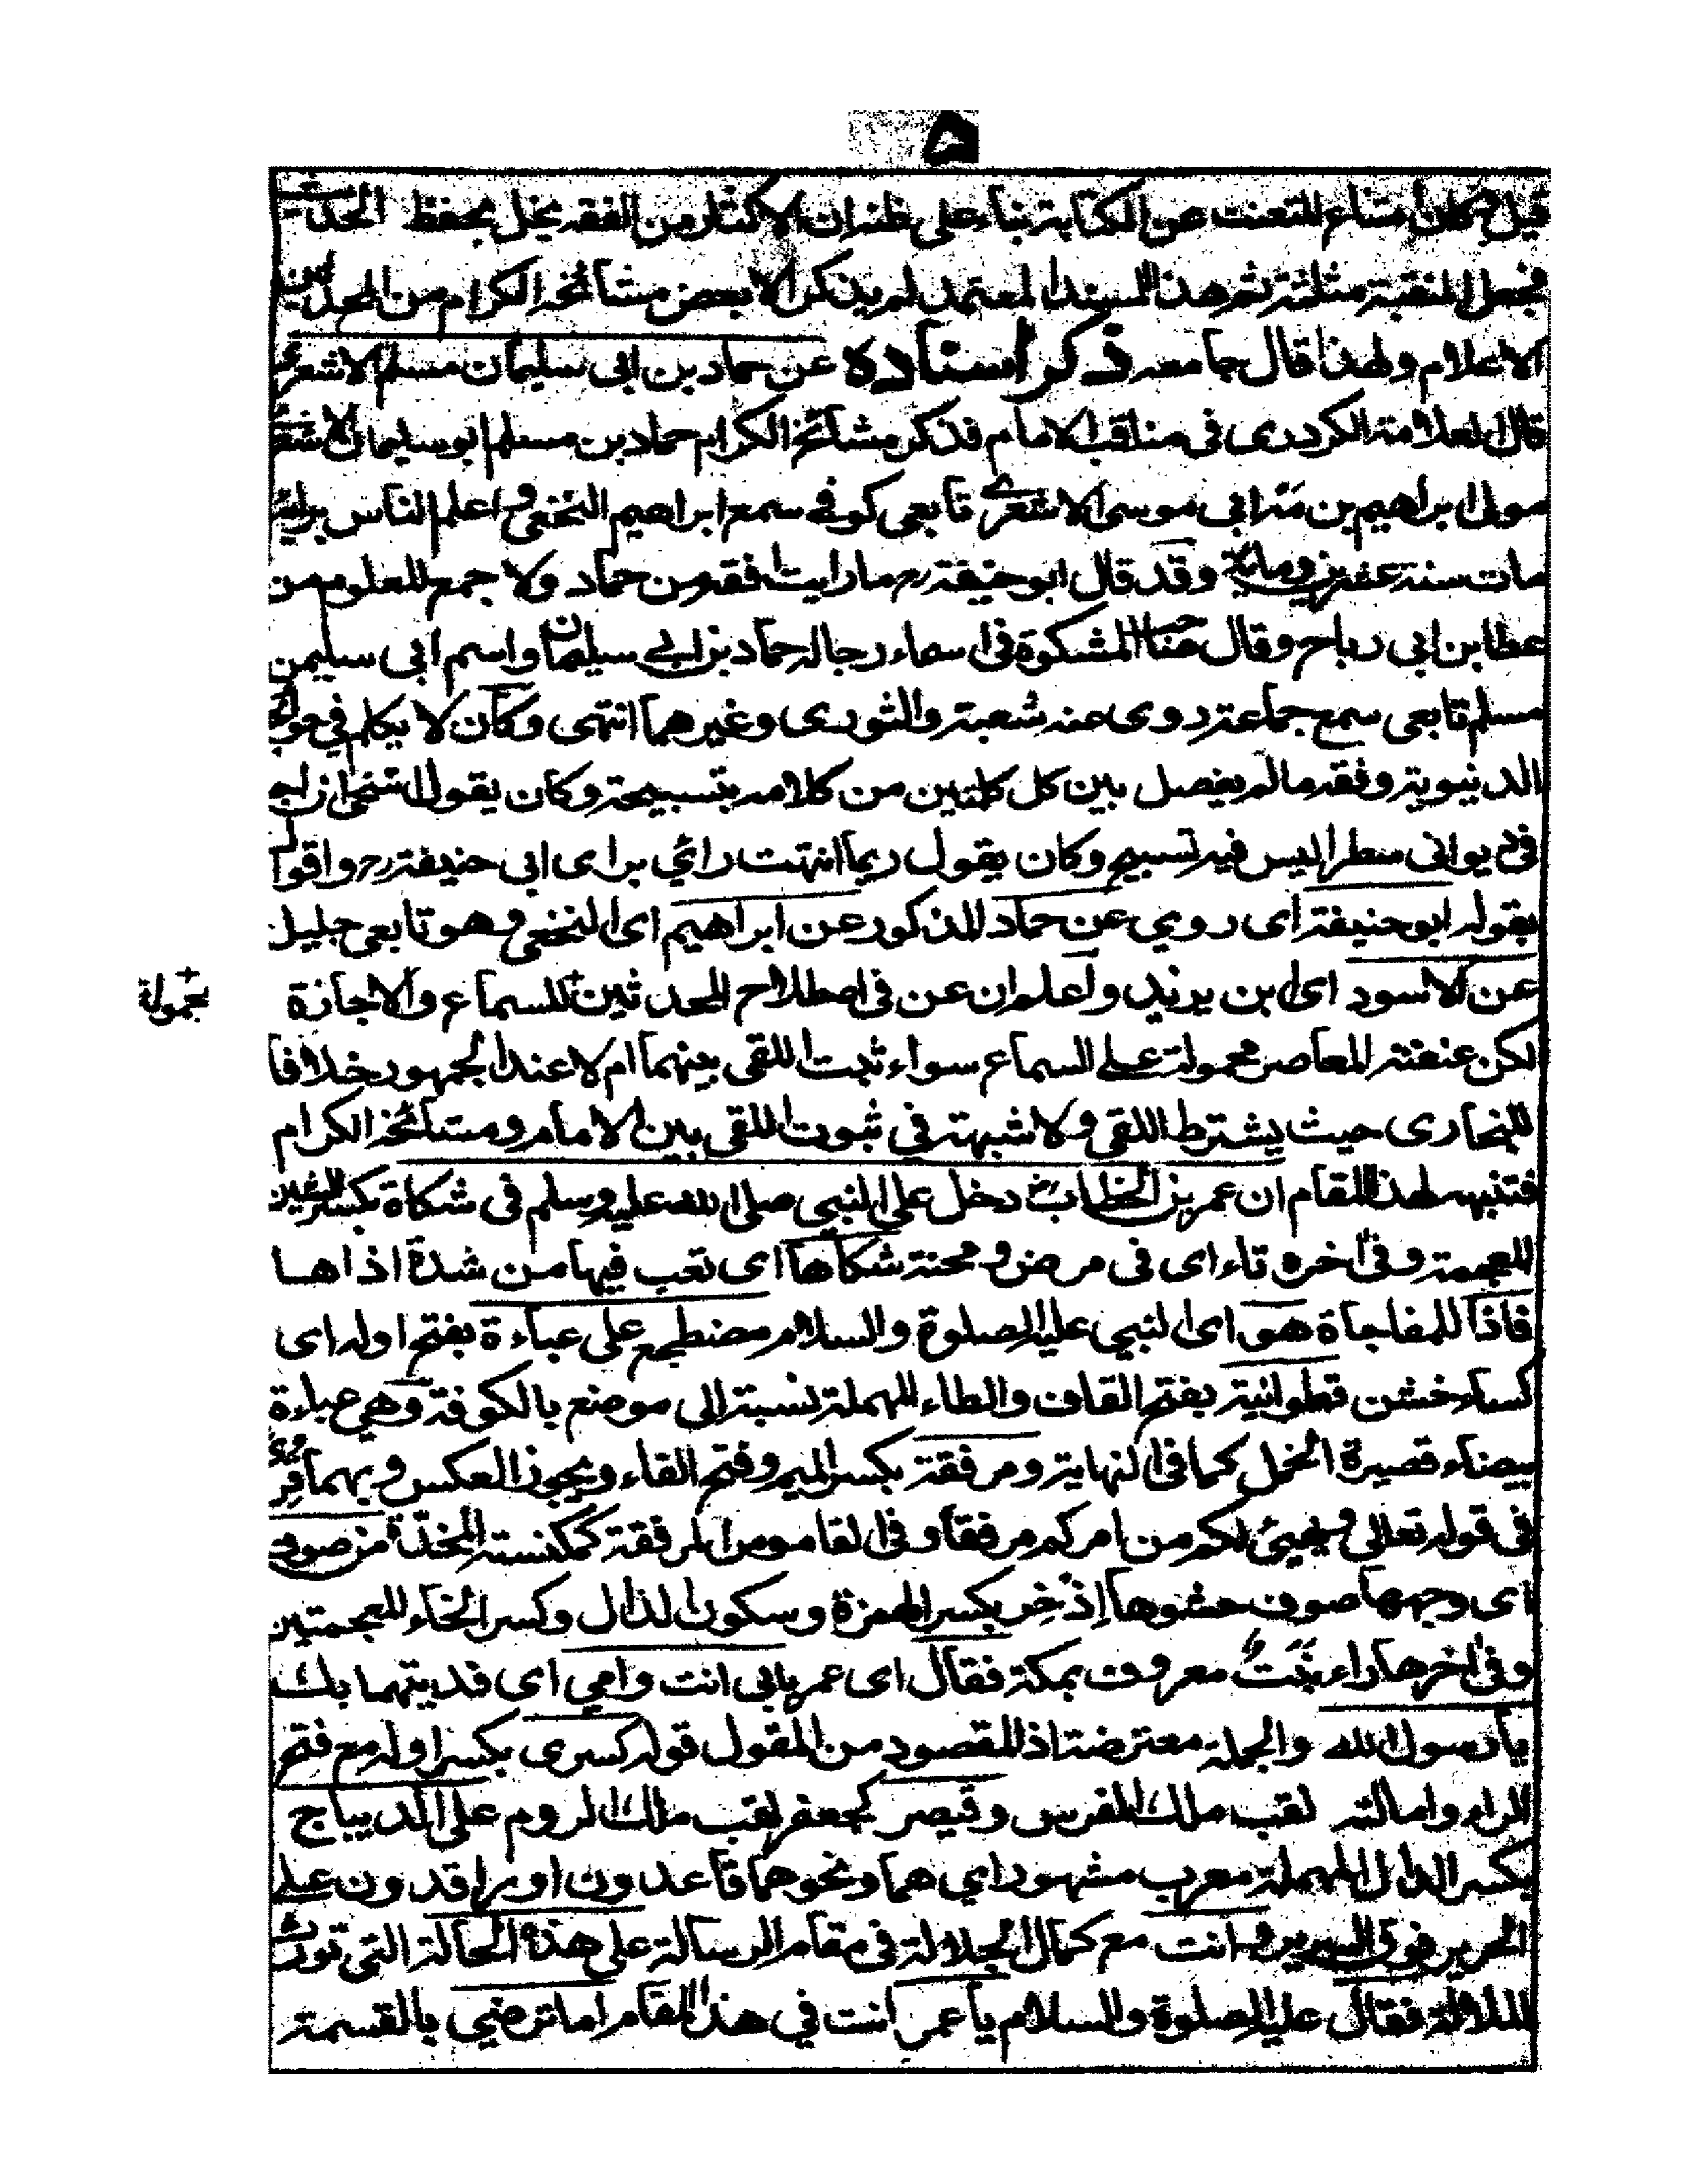 ۵
قيل وكان امتناع المتعنت عن الكتابة بناء على ظنه ان الاكثار من الفقه يخل بحفظ الحديث
فجعل المنقبة مثلثة ثم هذا المسند المعتمد لم يذكر الا بعض مشائخه الكرام من المحدثين
الاعلام ولهذا قال جامعه ذكر اسناده عن حماد بن ابى سليمان مسلم الاشعرى
قال العلامة الكردرى فى مناقب الامام فذكر مشائخ الكرام حماد بن مسلم ابو سليمان الاشعرى
مولى ابراهيم بن ابى موسى الاشعرى تابعى كوفى سمع ابراهيم النخعى و اعلم الناس برايه
مات سنة عشرين ومائة وقد قال ابو حنيفة رح ما رايت افقه من حماد ولا جمع للعلوم من
عطا بن ابى رباح وقال صاحب المشكوة فى اسماء رجاله حماد بن ابى سليمان واسم ابى سليمن
مسلم تابعى سمع جماعة روى عنه شعبة والثورى وغيرهما انتهى وكان لا يكلم فى حوائجه
الدنيوية وفقه ما لم يفصل بين كل كلمتين من كلامه بتسبيحة وكان يقول استحى ان اجد
فى ديوانى سطرا ليس فيه تسبيح وكان يقول ربما انتهت رائي براى ابى حنيفة رح واقول
بقوله ابو حنيفة اى روي عن حماد المذكور عن ابراهيم اى النخعى وهو تابعى جليل
عن الاسود اى ابن يزيد واعلم ان عن فى اصطلاح المحدثين للسماع والاجازة
محمولة
لكن عنعنة المعاصر محمولة على السماع سواء ثبت اللقى بينهما ام لا عند الجمهور خلافا
للبخارى حيث يشترط اللقى ولا شبهة في ثبوت اللقى بين الامام ومشائخه الكرام
فتنبه لهذا المقام ان عمر بن الخطاب دخل على النبي صلى الله عليه وسلم فى شكاة بكسر الشين
المعجمة وفى اخره تاء اى فى مرض و محنة شكاها اى تعب فيها من شدة اذاها
فاذا للمفاجاة هو اى النبي عليه الصلوة والسلام مضطجع على عباءة بفتح اوله اى
كساء خشن قطوانية بفتح القاف والطاء المهملة نسبة الى موضع بالكوفة وهي عباءة
بيضاء قصيرة الخمل كما فى النهاية ومرفقة بكسر الميم وفتح الفاء ويجوز العكس وبهما قرئ
فى قوله تعالى ويهيئ لكم من امركم مرفقا وفى القاموس المرفقة كمكنسة المخدة من صوف
اى وجهها صوف حشوها اذخر بكسر الهمزة وسكون الذال وكسر الخاء المعجمتين
وفى اخرها راء نبت معروف بمكة فقال اى عمر بابى انت وامي اى فديتهما بك
يا رسول الله والجملة معترضة اذ المقصود من المقول قوله كسرى بكسر اوله مع فتح
الراء وامالته لقب ملك الفرس وقيصر كجعفر لقب ملك الروم على الديباج
بكسر الدال المهملة معرب مشهور اي هما ونحوهما قاعدون او راقدون على
الحرير فوق السرير وانت مع كمال الجلالة فى مقام الرسالة على هذه الحالة التى تورث
الملالة فقال عليه الصلوة والسلام يا عمر انت في هذا المقام اما ترضي بالقسمة